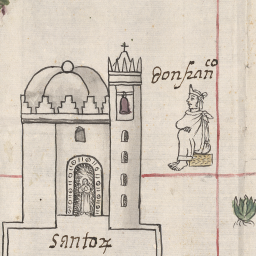 donfran^co
santoz